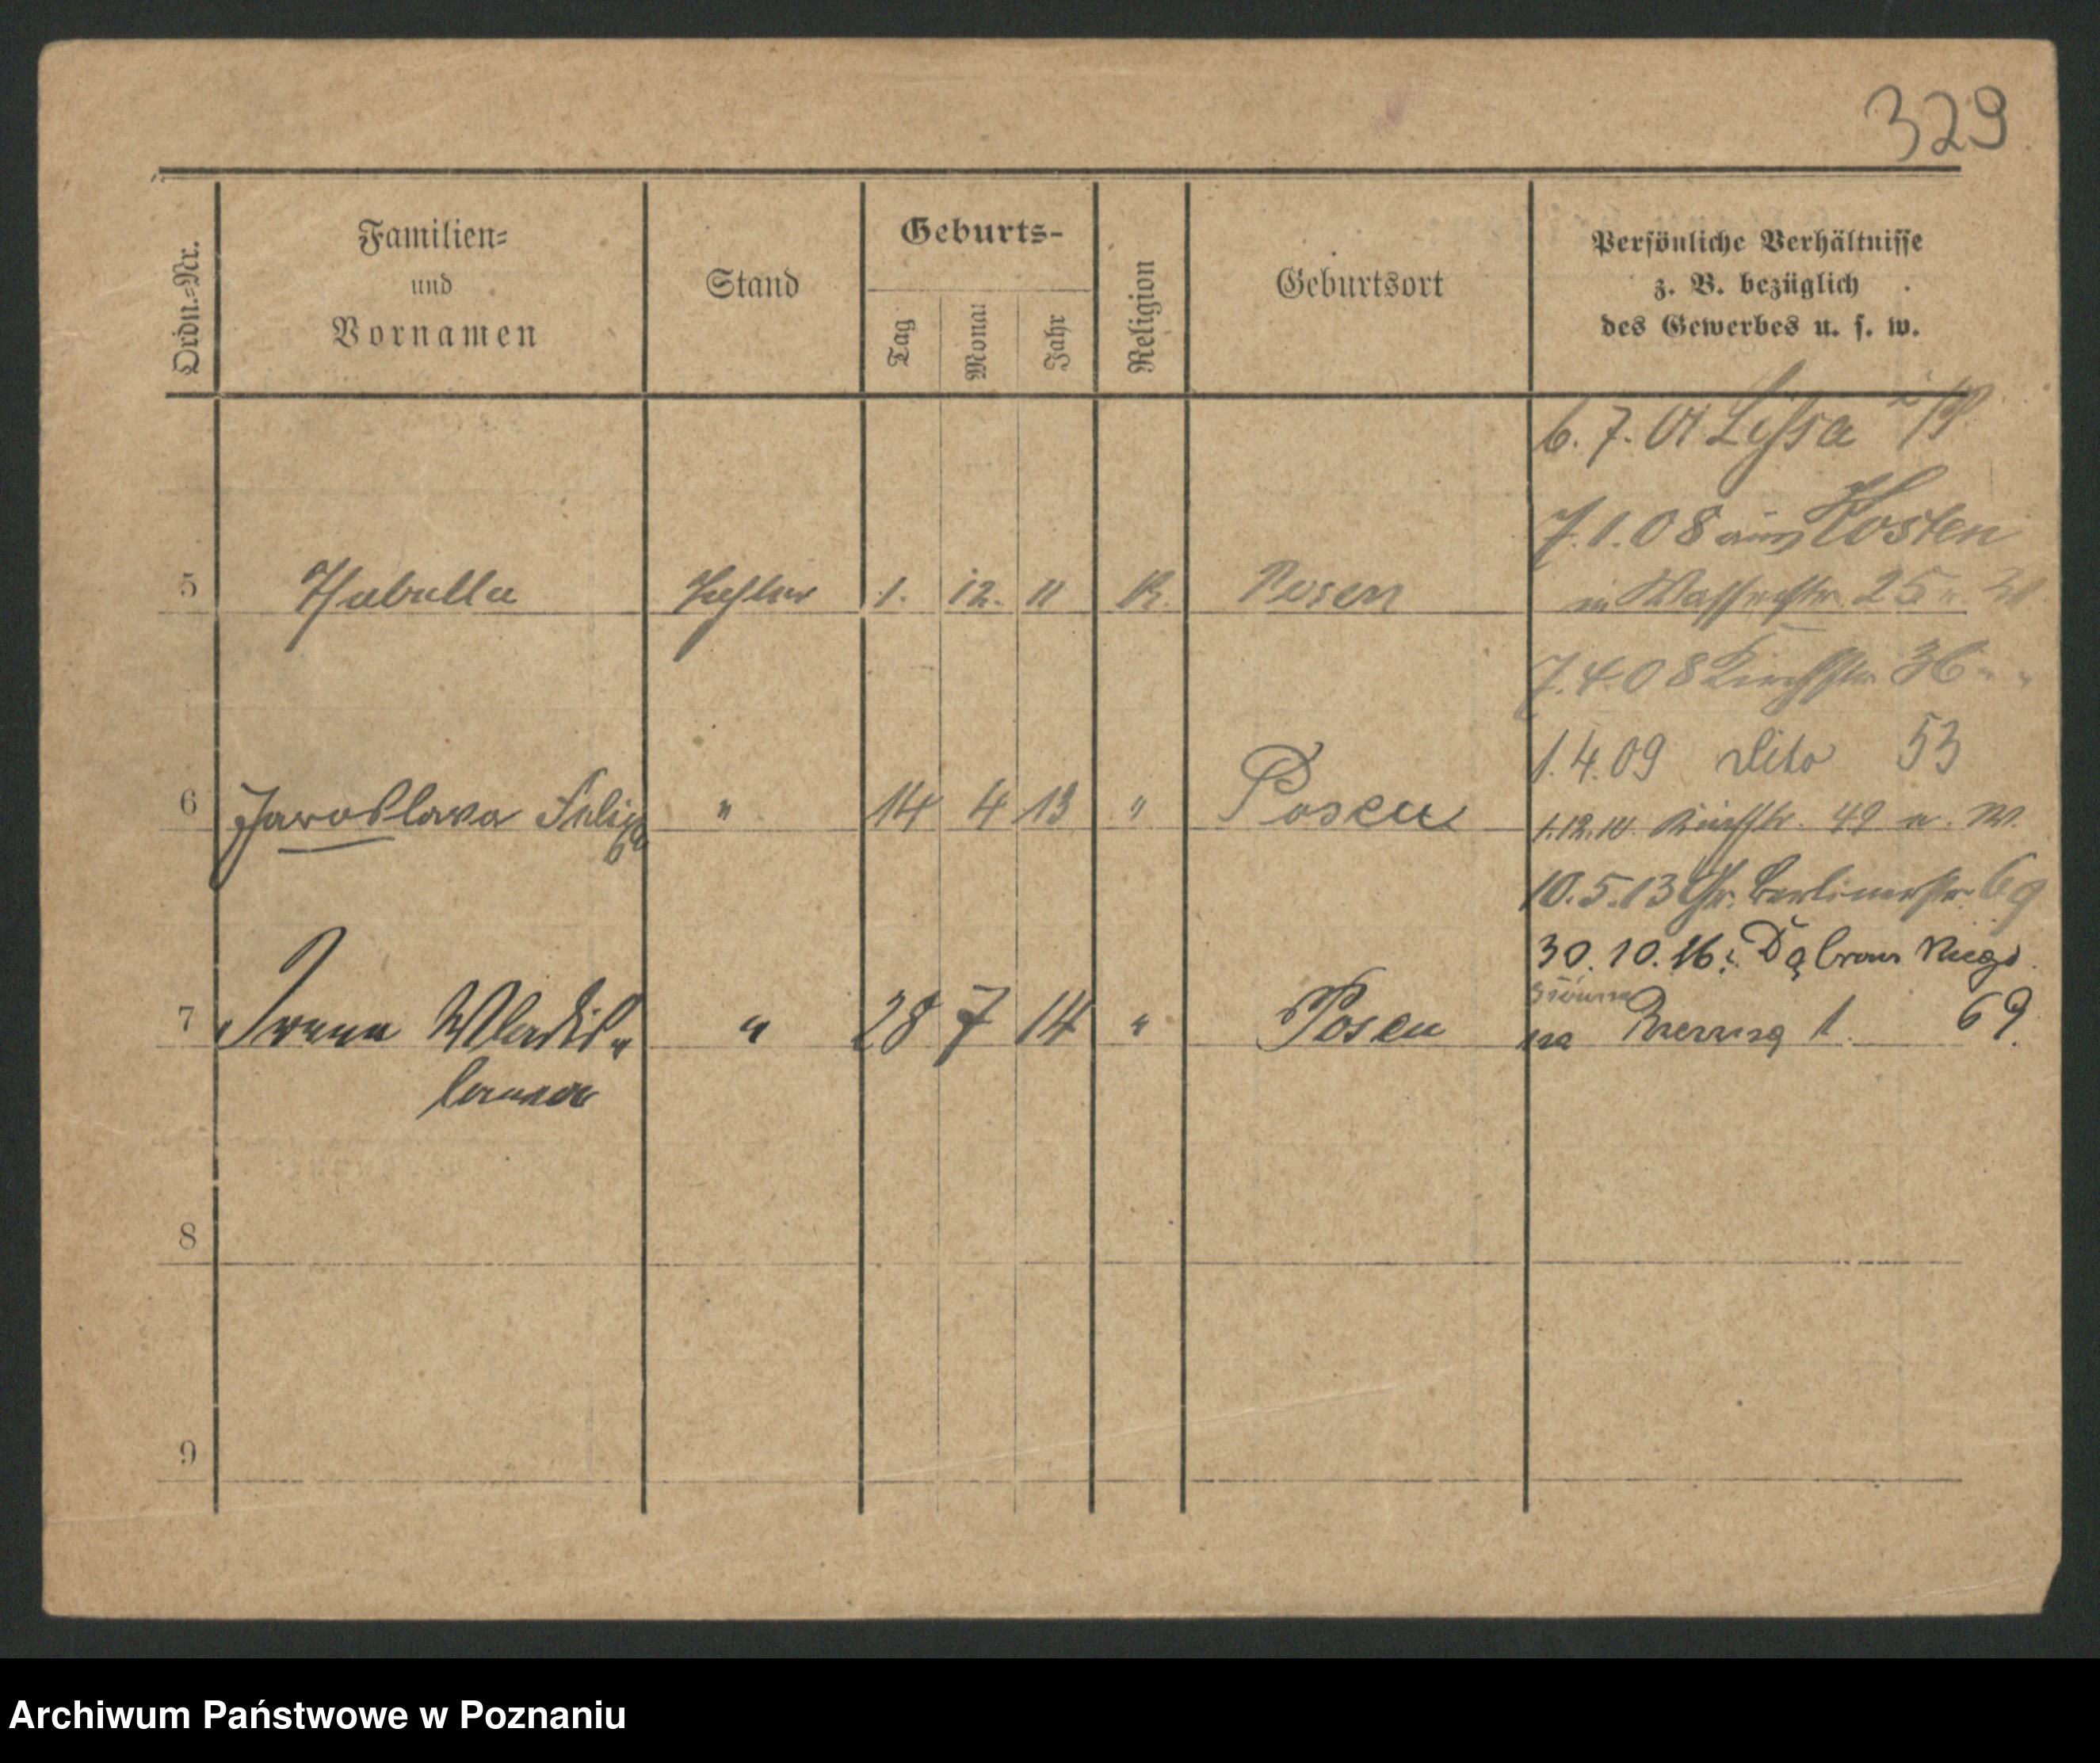 329
Ordn.=Nr.
Familien=
und
Vornamen
Stand
Geburts-
Tag
Monat
Jahr
Religion
Geburtsort
Persönliche Verhältnisse
z. B. bezüglich
des Gewerbes u. s. w.
6. 7. 01 Lissa i/P
7. 1. 08 aus Kosten
5 Isabella Tochter 1. 12. 11 K. Posen
in Wasserstr. 25
7. 4. 08 Kirchstr. 36 " "
1. 4. 09 dito 53
6 Jaroslava " 14 4 13 " Posen
1.12.10. Kirchstr. 49 u. W.
10. 5. 13 Gr. Berlinerstr. 69
30. 10. 16:
7 Irene Wladis= " 28 7 14 " Posen
na 1. 69.
lawa
8
9
Archiwum Państwowe w Poznaniu